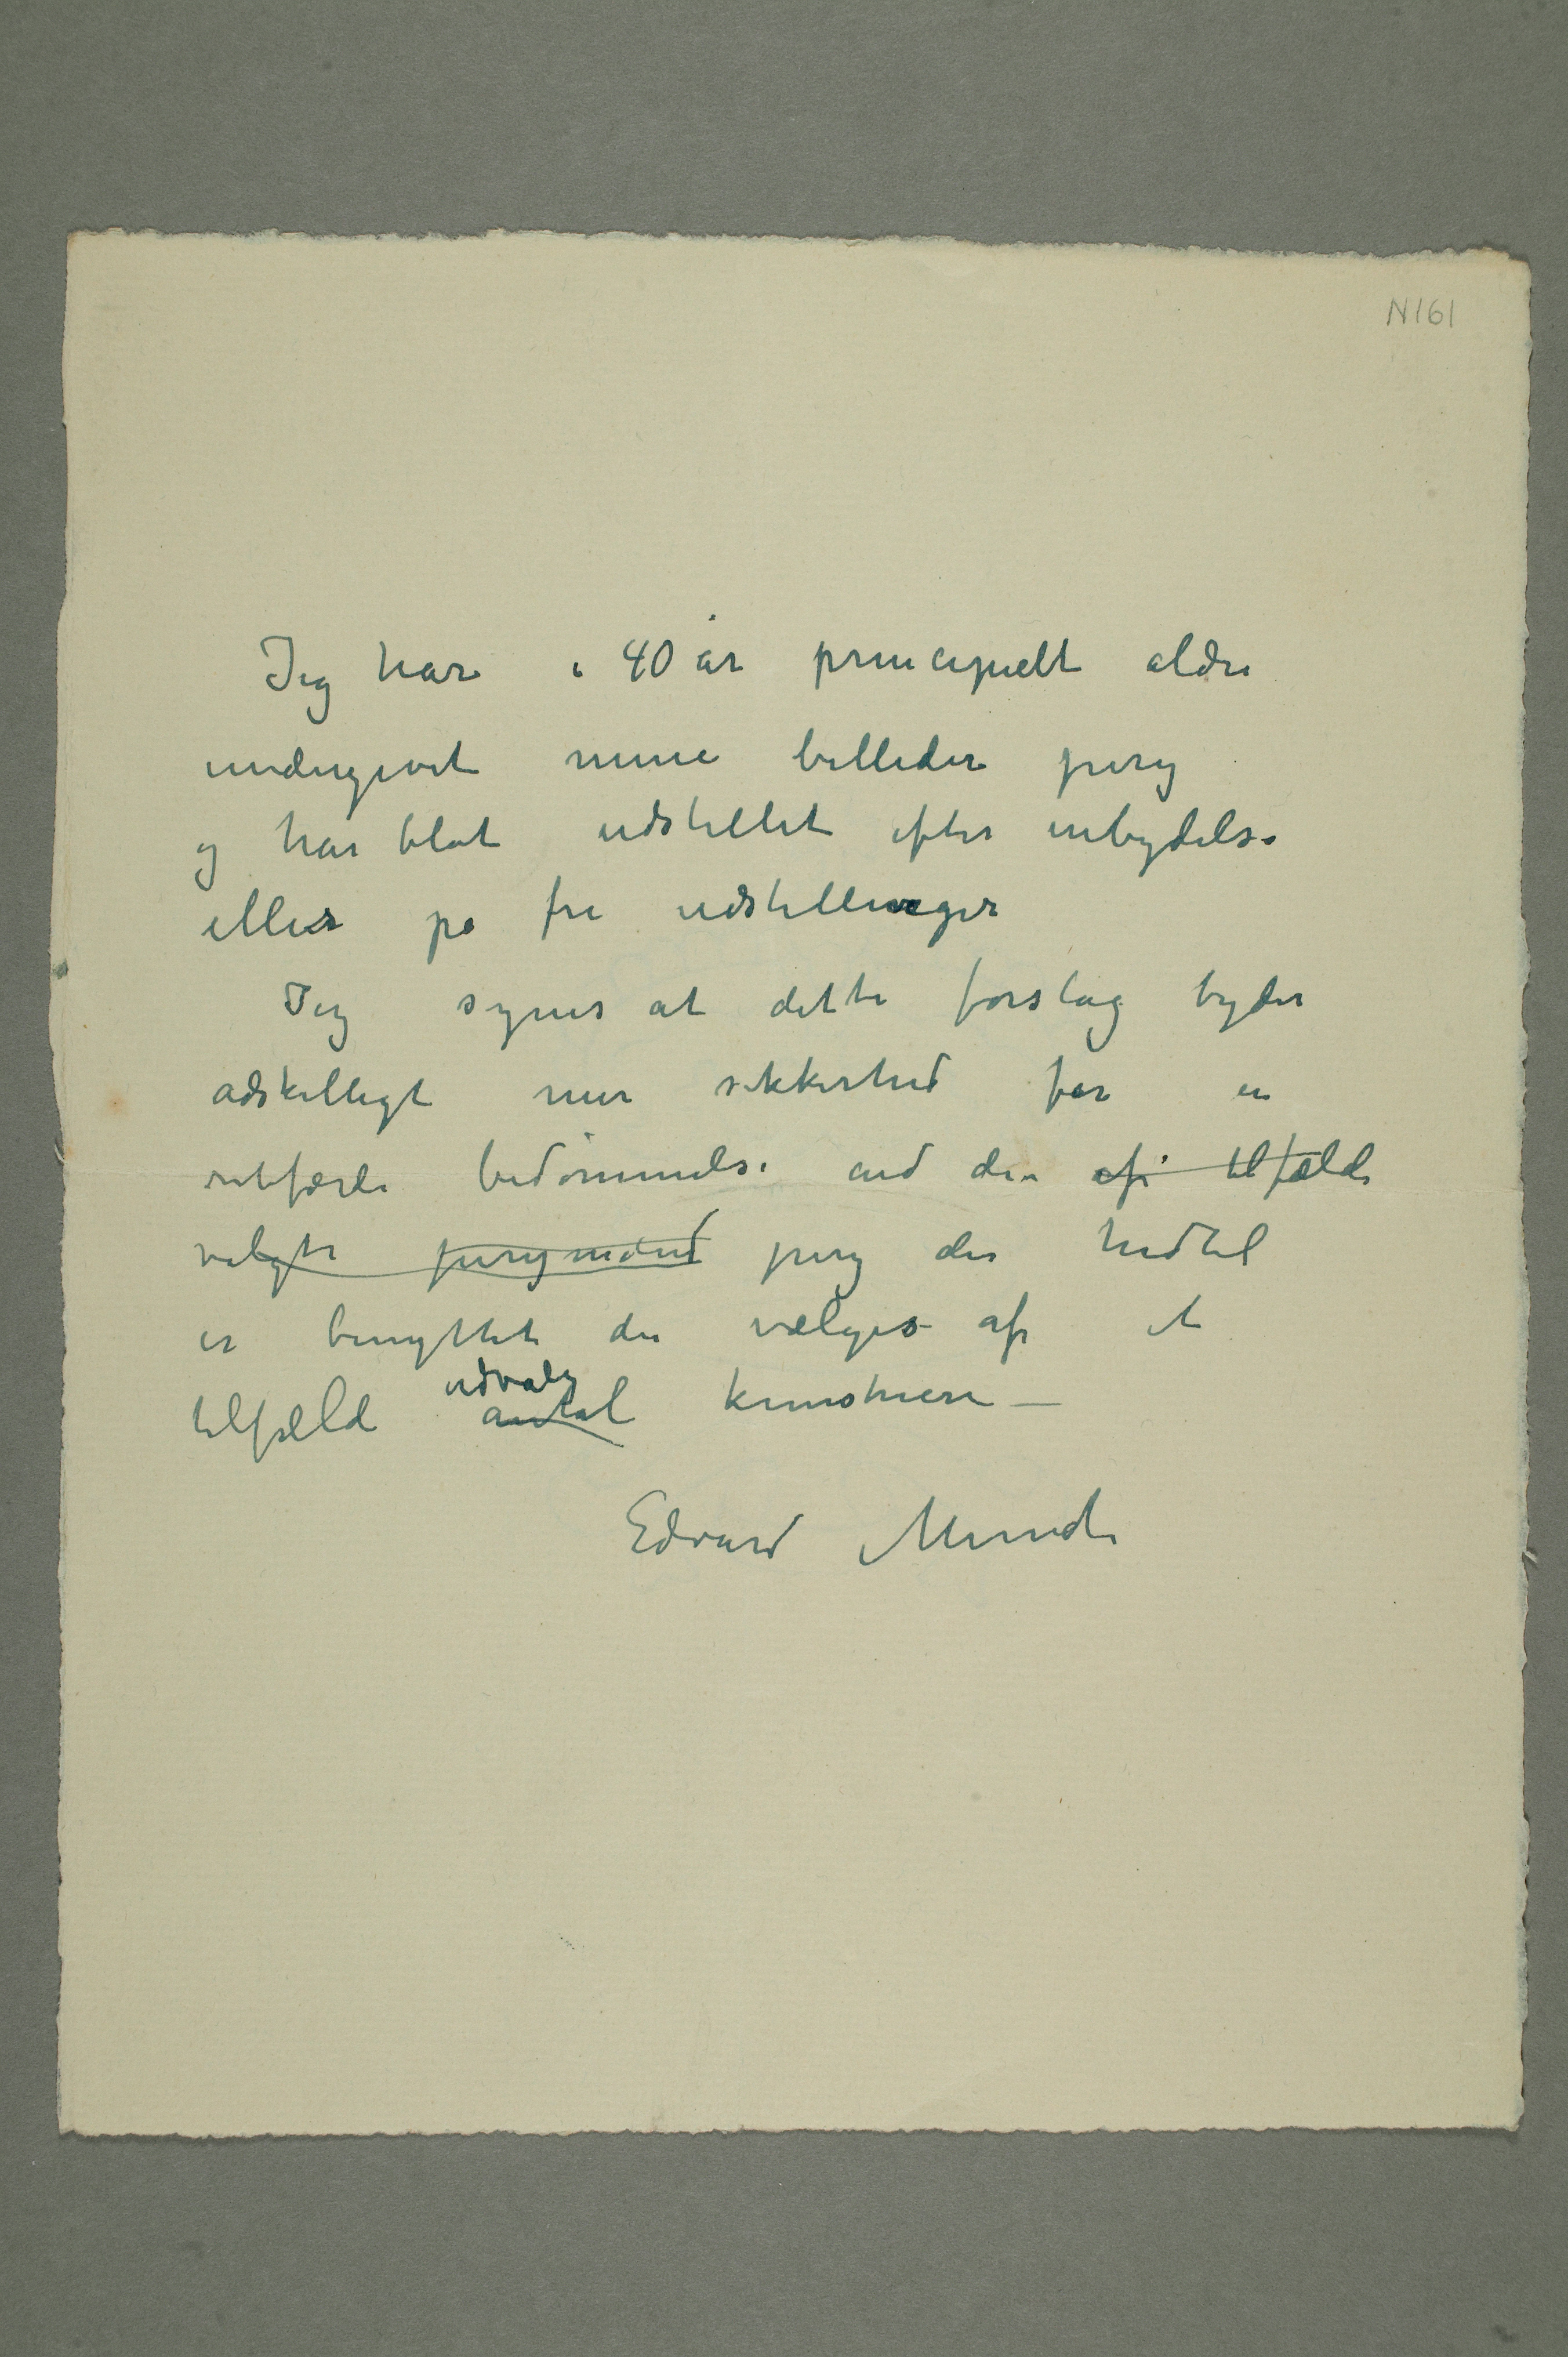 N161
Jeg har i 40 år principielt aldri
undergivet mine billeder jury
og har blot udstillet efter inbydelse
eller på fri udstillinger
Jeg synes at dette forslag byder
adskilligt mer sikkerhed for en
retfærdi bedømmelse end den af tilfældi
valgte jurymænd jury der hidtil
er benyttet der vælges af et
udvalg
tilfældi antal kunstnere –
Edvard Munch